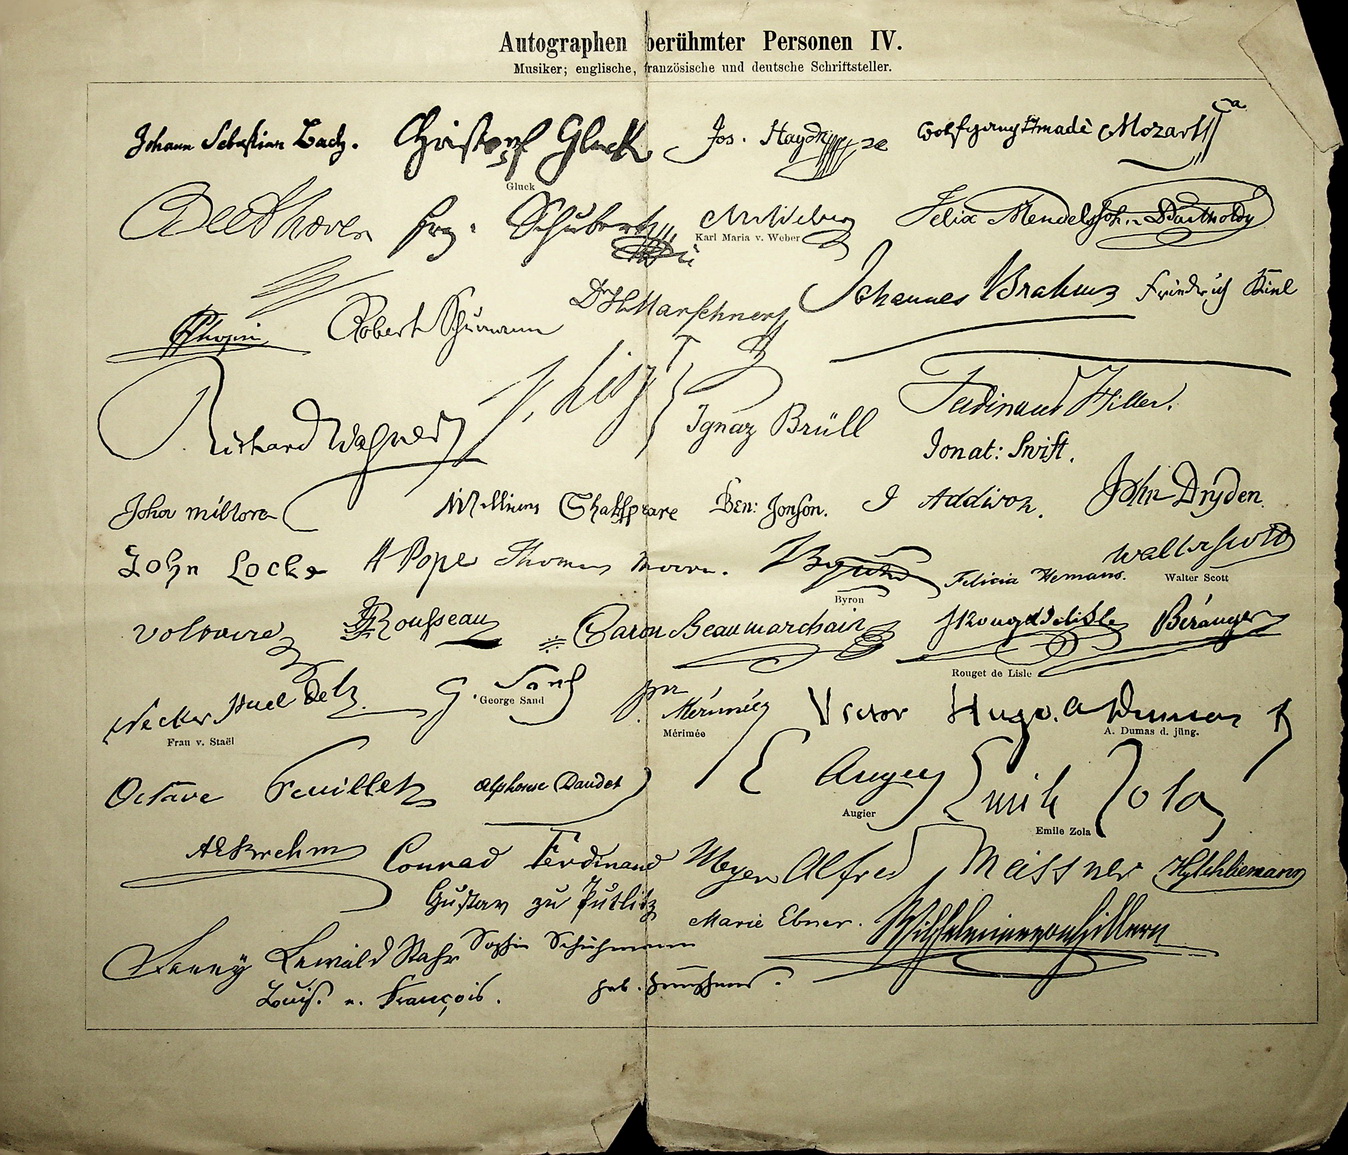 Autographen berühmter Personen IV.
Musiker; englische, französische und deutsche Schriftsteller.
Johann Sebastian Bach. Christoph Gluck Jos. Haydn Wolfgang Amadè Mozart
Gluck
Beethoven Frz. Schubert CMvWeber Felix Mendelssohn Bartholdy
Karl Maria v. Weber
FChopin Robert Schumann Dr H Marschner Johannes Brahms Friedrich Kiel
Richard Wagner F. Liszt Ignaz Brüll Ferdinand Hiller.
Jonat: Swift.
John Milton William Shakspeare Ben: Jonson. J Addison. John Dryden
John Locke A Pope Thomas Moore. Byron Felicia Hemans. Walter Scott
Byron Walter Scott
Voltaire JJRousseau Caron Beaumarchais JRouget de Lisle Béranger
Rouget de Lisle
Necker Stael de H. G. Sand Mérimée Victor Hugo. A Dumas f
Frau v. Staël George Sand Mérimée A. Dumas d. jüng.
Octave Feuillet Alphonse Daudet E Augier Emile Zola
Augier Emile Zola
AEBrehm Conrad Ferdinand Meyer Alfred Meissner HySchliemann
Gustav zu Putlitz Marie Ebner. Wilhelmine von Hillern
Fanny Lewald Stahr Sophie
Louise v. François. geb.